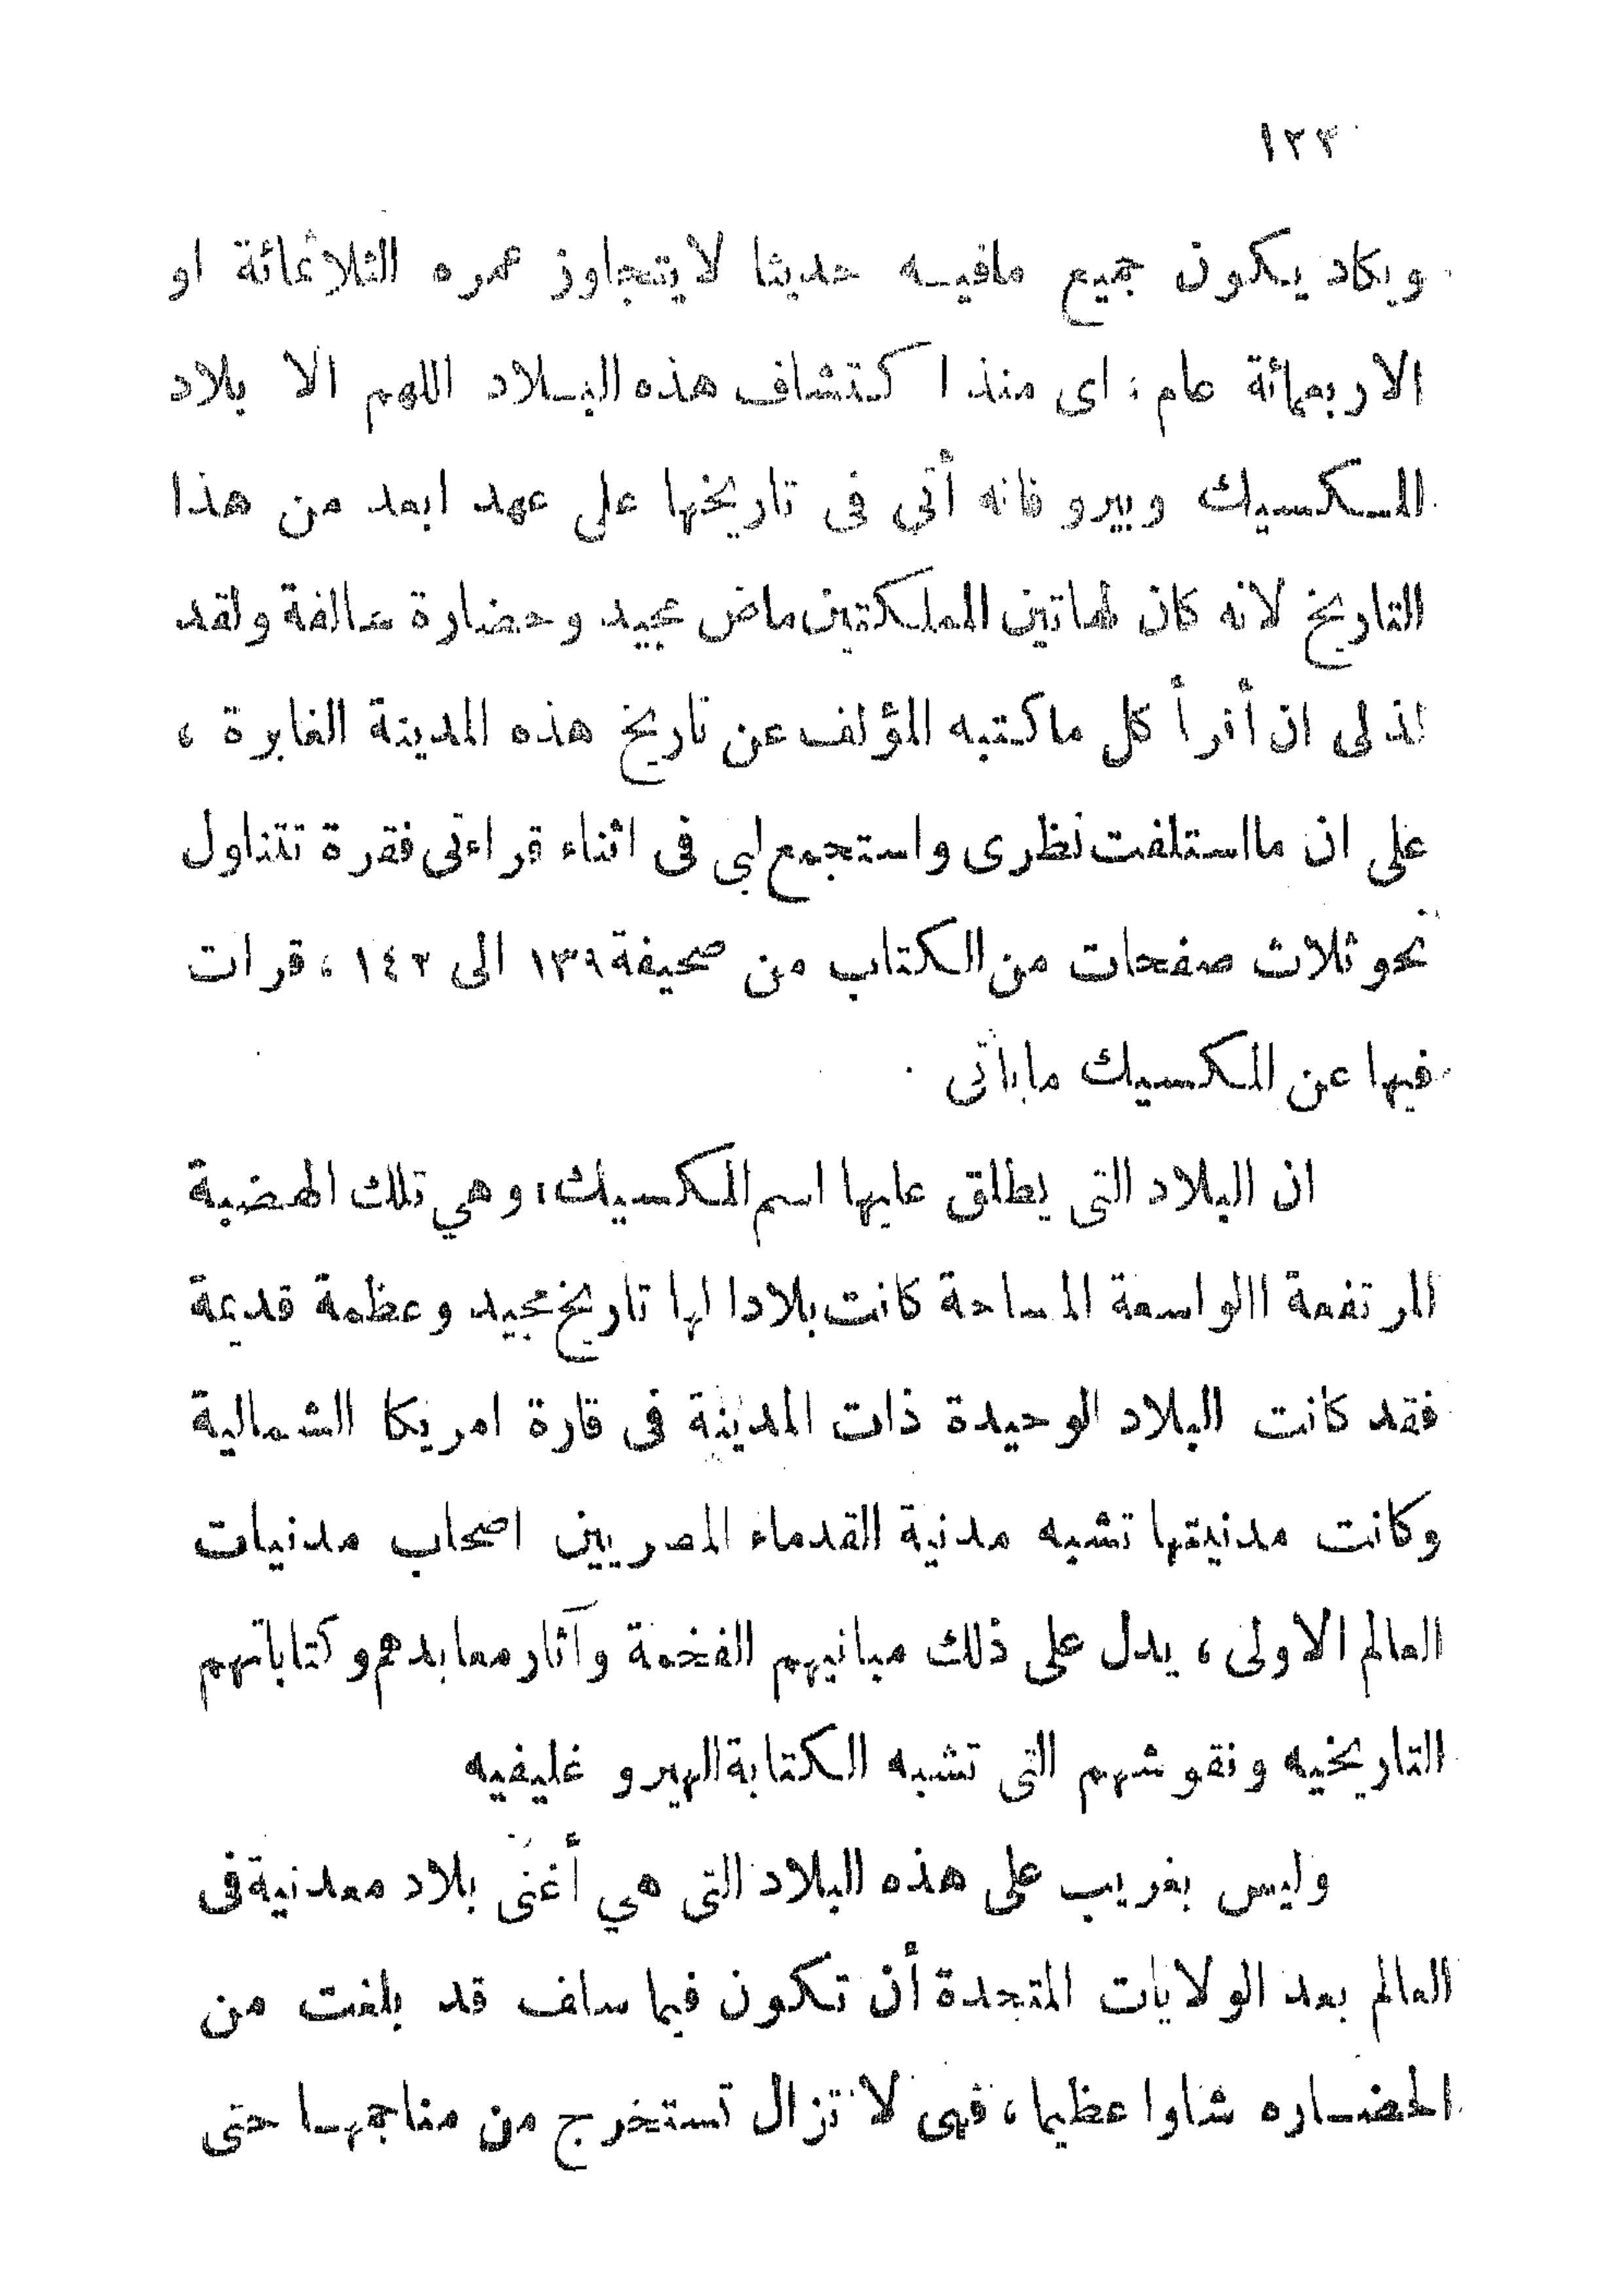 ١٢٣
ويكاد يكون جميع مافيه حديثا لايتجاوز عمره الثلاثمائة او
الاربعمائة عام، اى منذ اكتشاف هذه البلاد اللهم الا بلاد
المكسيك وبيرو فانه أتى فى تاريخها على عهد ابعد من هذا
التاريخ لانه كان لهاتين المملكتين ماض مجيد وحضارة سالفة ولقد
لذلى ان أقرأ كل ماكتبه المؤلف عن تاريخ هذه المدينة الغابرة ،
على ان مااستلفت نظرى واستجمع لبى فى اثناء قراءتى فقرة تتناول
نحو ثلاث صفحات من الكتاب من صحيفة ١٣٩ الى ١٤٢ ، قرات
فيها عن المكسيك ماياتى
ان البلاد التى يطلق عليها اسم المكسيك، وهي تلك الهضبة
المرتفعة االواسعة المساحة كانت بلادا لها تاريخ مجيد وعظمة قديمة
فقد كانت البلاد الوحيدة ذات المدينة فى قارة امريكا الشمالية
وكانت مدنيتها تشبه مدنية القدماء المصريين اصحاب مدنيات
العالم الاولى ، يدل على ذلك مبانيهم الفخمة وآثار معابدهم وكتاباتهم
التاريخيه ونقوشهم التى تشبه الكتابة الهيرو غليفيه
وليس بغريب على هذه البلاد التى هي أغنى بلاد معدنية فى
العالم بعد الولايات المتحدة أن تكون فيما سلف قد بلغت من
الحضاره شاوا عظيما ، فهى لا تزال تستخرج من مناجمها حتى